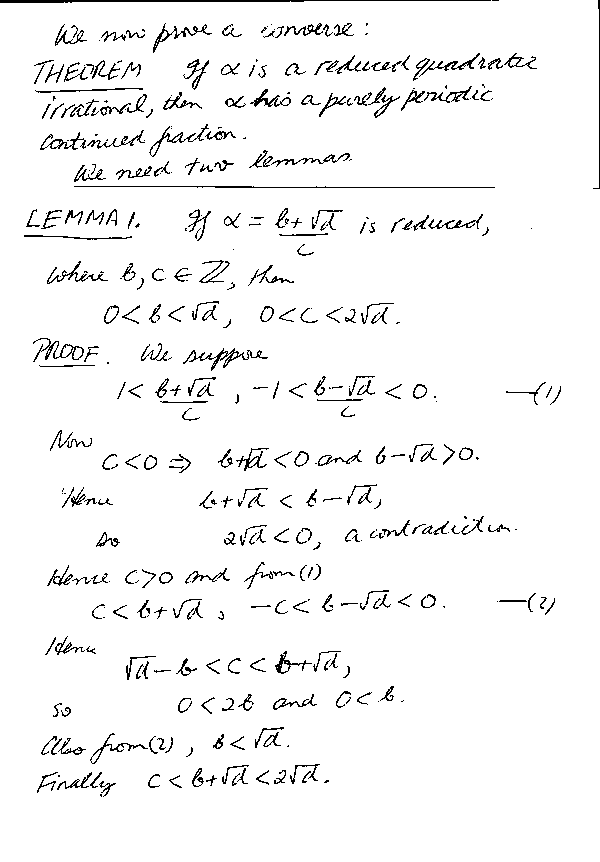 We now prove a converse:
THEOREM If α is a reduced quadratic
irrational, then α has a purely periodic
continued fraction.
We need two lemmas
LEMMA 1. If α = (b+√d)/c is reduced,
where b, c ∈ ℤ, then
0 < b < √d, 0 < c < 2√d.
PROOF. We suppose
1 < (b+√d)/c , -1 < (b-√d)/c < 0. —(1)
Now
c < 0 ⇒ b+√d < 0 and b-√d > 0.
Hence b+√d < b-√d,
so 2√d < 0, a contradiction.
Hence c > 0 and from (1)
c < b+√d, -c < b-√d < 0. —(2)
Hence
√d-b < c < b+√d,
so 0 < 2b and 0 < b.
Also from (2), b < √d.
Finally c < b+√d < 2√d.